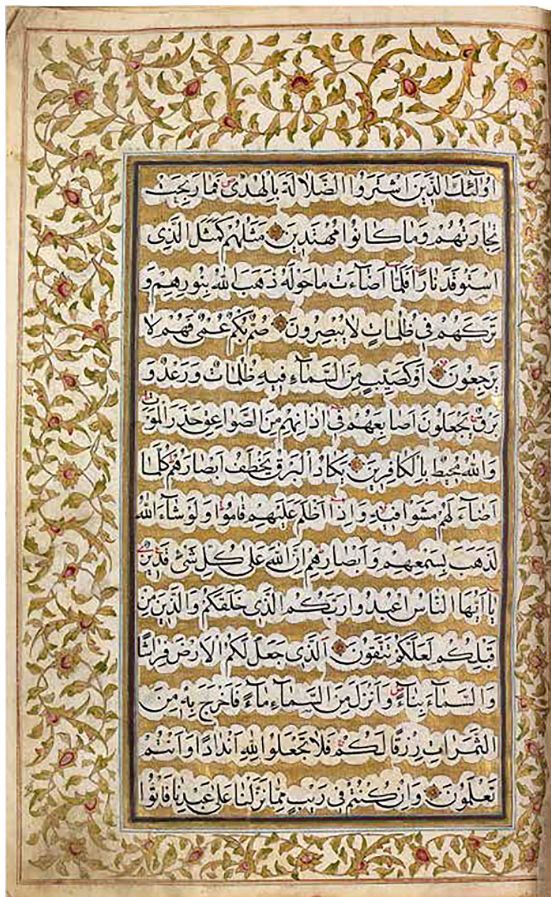 اُولٰٓئِكَ الَّذِينَ اشْتَرَوُا الضَّلَالَةَ بِالْهُدٰى فَمَا رَبِحَتْ
تِجَارَتُهُمْ وَمَا كَانُوا مُهْتَدِينَ مَثَلُهُمْ كَمَثَلِ الَّذِى
اسْتَوْقَدَ نَارًا فَلَمَّا اَضَآءَتْ مَا حَوْلَهُ ذَهَبَ اللهُ بِنُورِهِمْ وَ
تَرَكَهُمْ فِى ظُلُمَاتٍ لَا يُبْصِرُونَ صُمٌّ بُكْمٌ عُمْىٌ فَهُمْ لَا
يَرْجِعُونَ اَوْ كَصَيِّبٍ مِنَ السَّمَآءِ فِيهِ ظُلُمَاتٌ وَرَعْدٌ وَ
بَرْقٌ يَجْعَلُونَ اَصَابِعَهُمْ فِى اٰذَانِهِمْ مِنَ الصَّوَاعِقِ حَذَرَ الْمَوْتِ
وَاللهُ مُحِيطٌ بِالْكَافِرِينَ يَكَادُ الْبَرْقُ يَخْطَفُ اَبْصَارَهُمْ كُلَّمَا
اَضَآءَ لَهُمْ مَشَوْا فِيهِ وَاِذَٓا اَظْلَمَ عَلَيْهِمْ قَامُوا وَلَوْ شَآءَ اللهُ
لَذَهَبَ بِسَمْعِهِمْ وَاَبْصَارِهِمْ اِنَّ اللهَ عَلٰى كُلِّ شَىْءٍ قَدِيرٌ
يَآ اَيُّهَا النَّاسُ اعْبُدُوا رَبَّكُمُ الَّذِى خَلَقَكُمْ وَالَّذِينَ مِنْ
قَبْلِكُمْ لَعَلَّكُمْ تَتَّقُونَ اَلَّذِى جَعَلَ لَكُمُ الْاَرْضَ فِرَاشًا
وَالسَّمَآءَ بِنَآءً وَاَنْزَلَ مِنَ السَّمَآءِ مَآءً فَاَخْرَجَ بِهِ مِنَ
الثَّمَرَاتِ رِزْقًا لَكُمْ فَلَا تَجْعَلُوا لِلّٰهِ اَنْدَادًا وَاَنْتُمْ
تَعْلَمُونَ وَاِنْ كُنْتُمْ فِى رَيْبٍ مِمَّا نَزَّلْنَا عَلٰى عَبْدِنَا فَاْتُوا